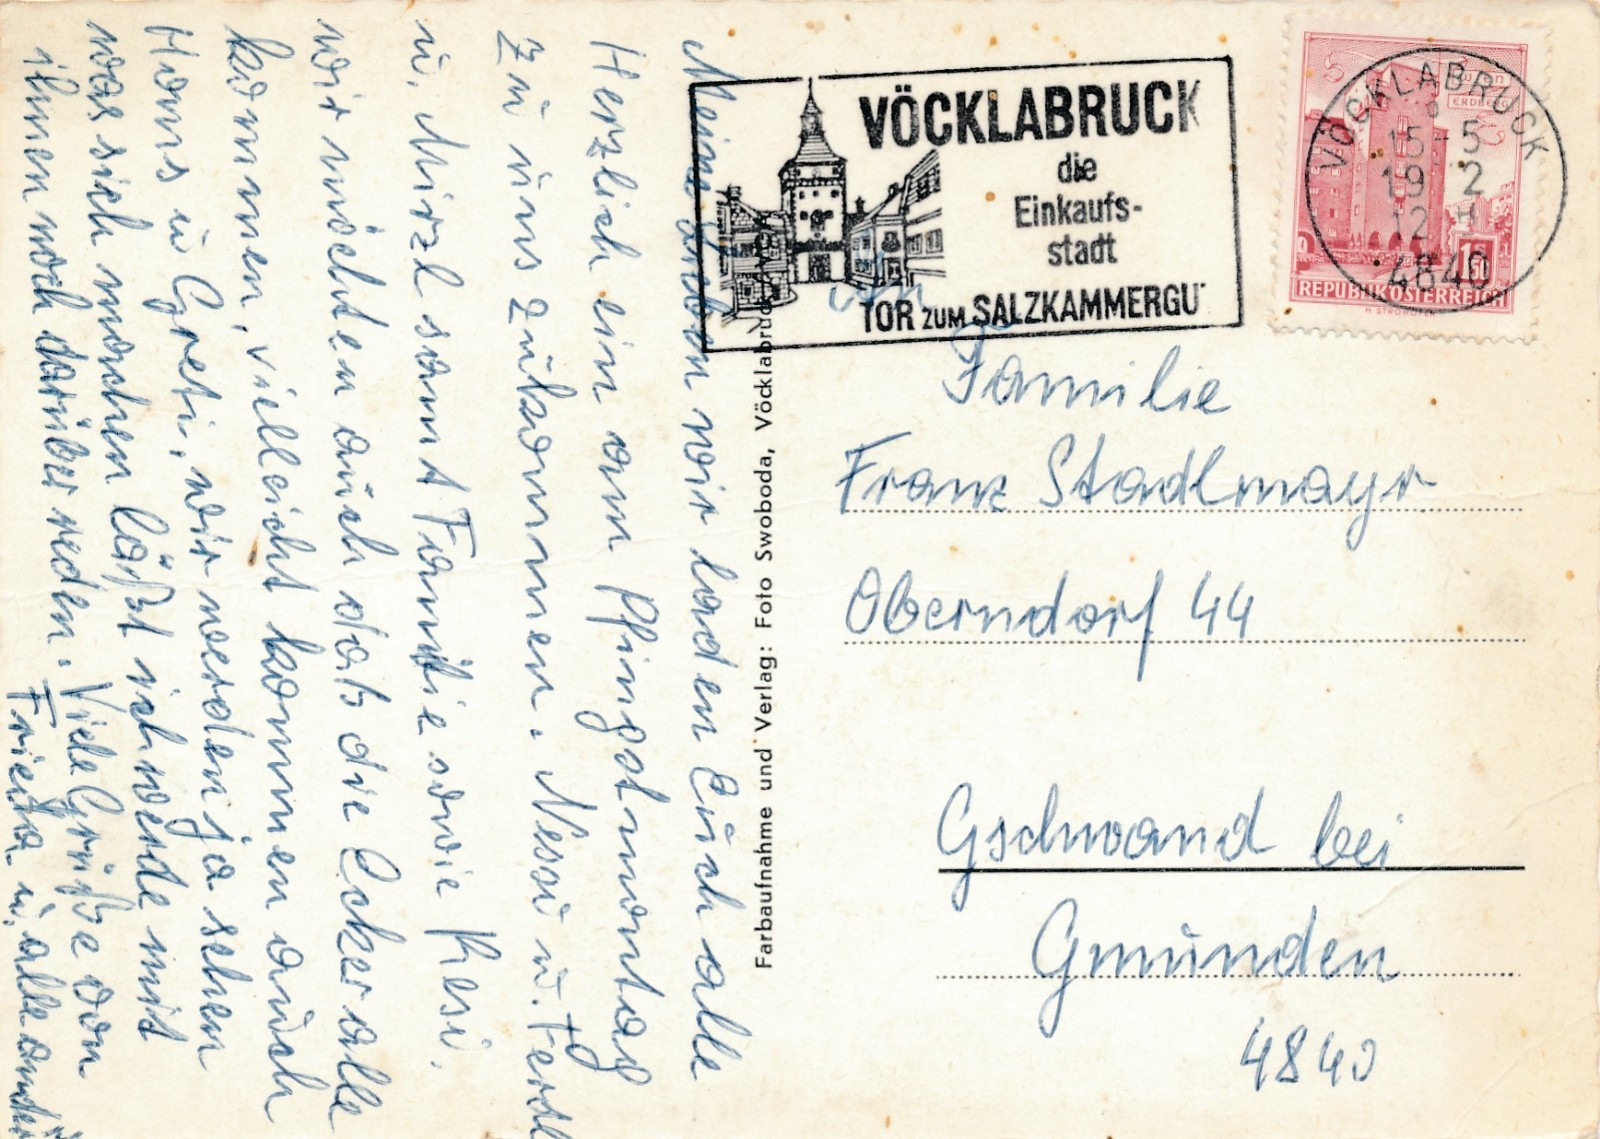 Meine Lieben wir laden Euch alle
Herzlich ein am Pfingstmontag
zu uns zukommen. Nessi u. Ferdl
u. Mirzl samt Familie sowie Resi.
wir möchten auch das die Ecker alle
kommen, vielleicht kommen auch
Hans u Greti, wir werden ja sehen
was sich machen läßt ich werde mit
ihnen noch darüber reden. Viele Grüße von
Frieda u. alle andern
Farbaufnahme und Verlag: Foto Swoboda, Vöcklabruck
VÖCKLABRUCK
die
Einkaufs-
stadt
TOR ZUM SALZKAMMERGU
Erdberg
1.50
REPUBLIK ÖSTERREICH
VÖCKLABRUCK
15-5
19 2
12 H
4840
Familie
Franz Stadlmayr
Oberndorf 44
Gschwand bei
Gmunden
4840